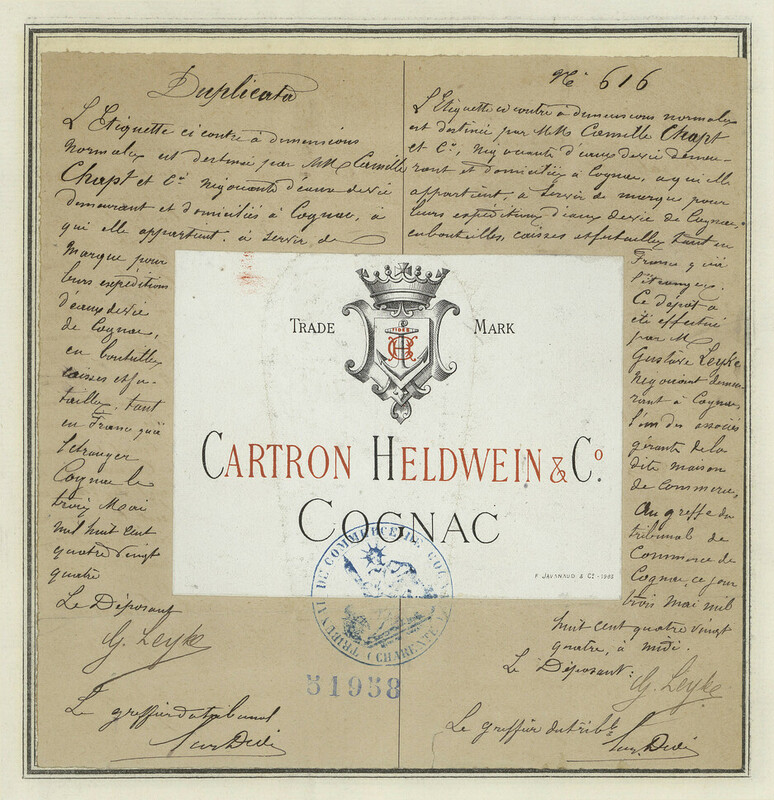 Duplicata
L'Etiquette ci contre à dimensions
normales est destinée par MM Camille
Chapt et Cie Négociants d'eaux de vie
demeurant et domiciliés à Cognac, à
qui elle appartient, à servir de
marque pour
leurs expéditions
d'eaux de vie
de Cognac,
en bouteilles
caisses et fu-
tailles, tant
en France qu'à
l'étranger
Cognac le
trois Mai
mil huit cent
quatre vingt
quatre
Le Déposant
G. Leyke
Le greffier du tribunal
No 616
L'Etiquette ci contre à dimensions normales
est destinée par MM Camille Chapt
et Cie, Négociants d'eaux de vie demeu-
rant et domiciliés à Cognac, à qui elle
appartient, à servir de marque pour
leurs expéditions d'eaux de vie de Cognac,
en bouteilles, caisses et futailles tant en
France qu'à
l'étranger.
Ce dépôt a
été effectué
par M.
Gustave Leyke
Négociant demeu-
rant à Cognac,
l'un des associés
gérants de la
dite maison
de commerce,
Au greffe du
tribunal de
Commerce de
Cognac, ce jour
trois mai mil
huit cent quatre vingt
quatre, à midi.
Le Déposant:
G. Leyke
Le greffier du tribal
TRADE MARK
TIDES
CARTRON HELDWEIN & Co.
COGNAC
F. JAVANAUD & Cie - 1982
TRIBUNAL DE COMMERCE DE COGNAC
(CHARENTE)
51958